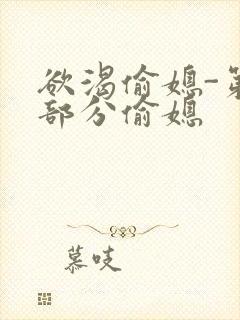 欲渴偷媳-第
部分偷媳
慕吱